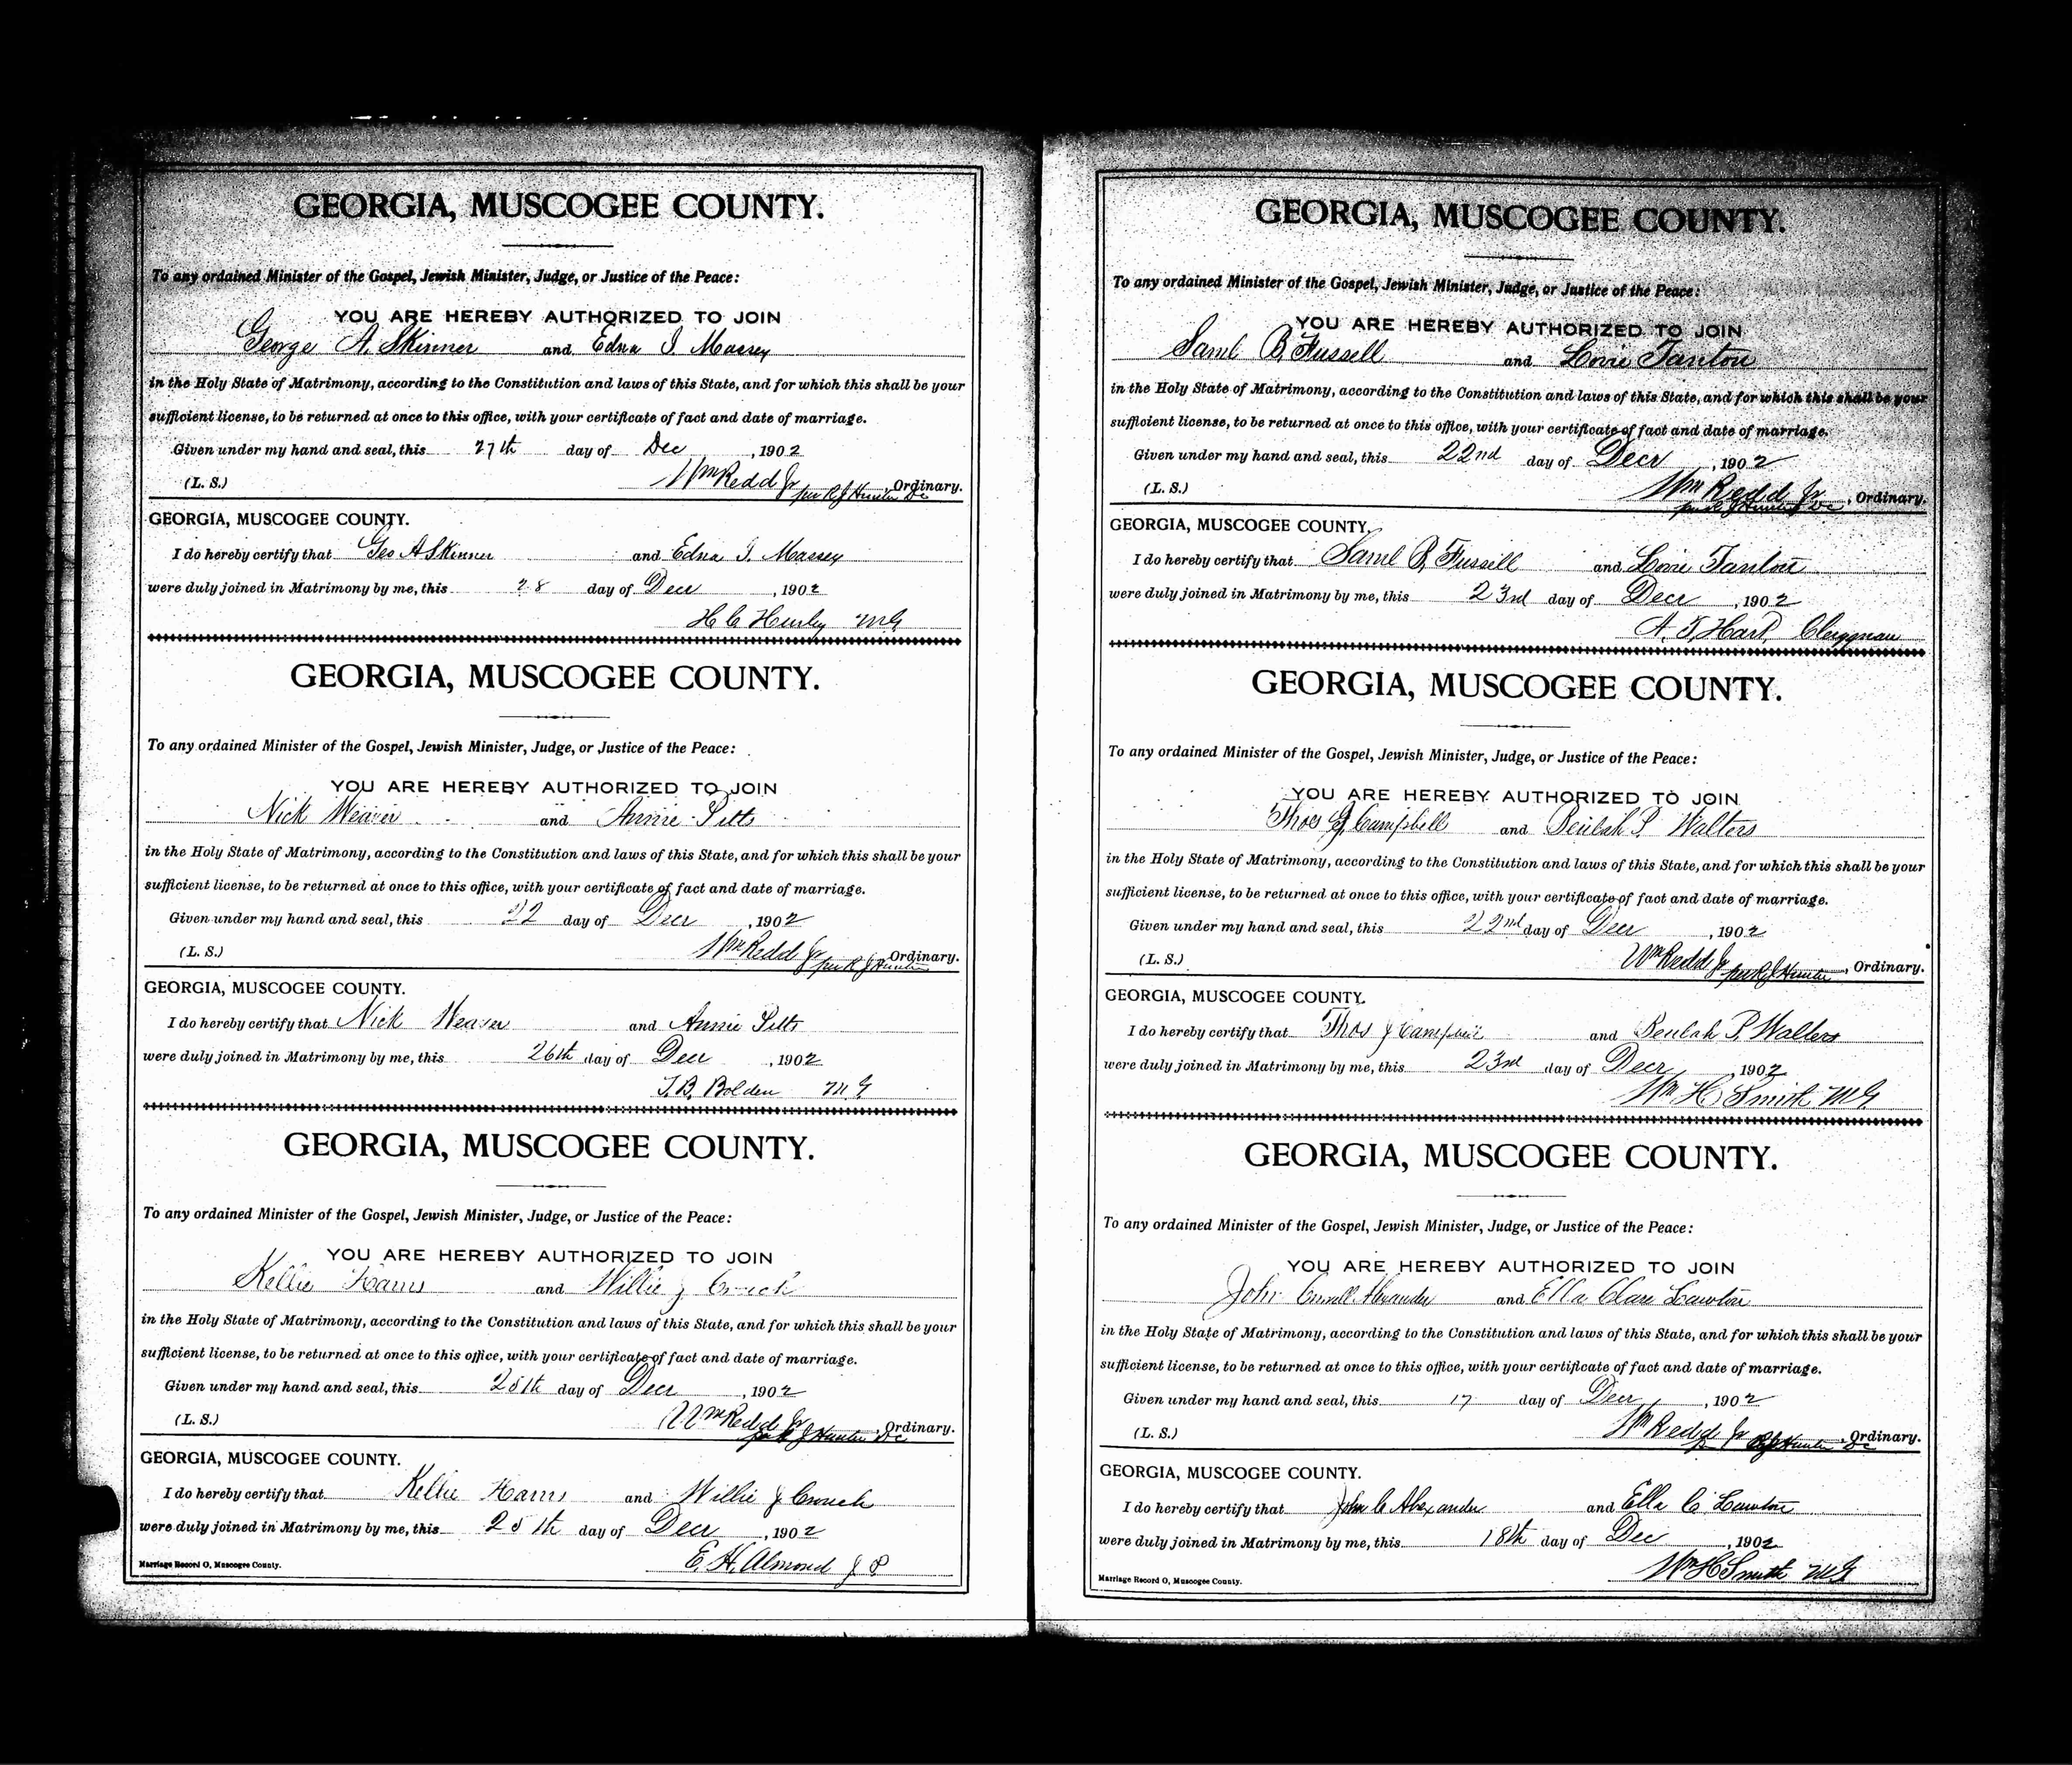 GEORGIA, MUSCOGEE COUNTY.
To any ordained Minister of the Gospel, Jewish Minister, Judge, or Justice of the Peace:
YOU ARE HEREBY AUTHORIZED TO JOIN
George A. Skinner and Edna I. Massey
in the Holy State of Matrimony, according to the Constitution and laws of this State, and for which this shall be your
sufficient license, to be returned at once to this office, with your certificate of fact and date of marriage.
Given under my hand and seal, this 27th day of Dec, 1902
(L. S.) Wm Redd Jr per R J Hunter DC, Ordinary.
GEORGIA, MUSCOGEE COUNTY.
I do hereby certify that Geo A Skinner and Edna I. Massey
were duly joined in Matrimony by me, this 28 day of Decr, 1902
H C Hurley MG
GEORGIA, MUSCOGEE COUNTY.
To any ordained Minister of the Gospel, Jewish Minister, Judge, or Justice of the Peace:
YOU ARE HEREBY AUTHORIZED TO JOIN
Nick Weaver and Annie Pitts
in the Holy State of Matrimony, according to the Constitution and laws of this State, and for which this shall be your
sufficient license, to be returned at once to this office, with your certificate of fact and date of marriage.
Given under my hand and seal, this 22 day of Decr, 1902
(L. S.) Wm Redd Jr per R J Hunter, Ordinary.
GEORGIA, MUSCOGEE COUNTY.
I do hereby certify that Nick Weaver and Annie Pitts
were duly joined in Matrimony by me, this 26th day of Decr, 1902
T. B. Bolden M. G
GEORGIA, MUSCOGEE COUNTY.
To any ordained Minister of the Gospel, Jewish Minister, Judge, or Justice of the Peace:
YOU ARE HEREBY AUTHORIZED TO JOIN
Kellie Harris and Willie J Crouch
in the Holy State of Matrimony, according to the Constitution and laws of this State, and for which this shall be your
sufficient license, to be returned at once to this office, with your certificate of fact and date of marriage.
Given under my hand and seal, this 25th day of Decr, 1902
(L. S.) Wm Redd Jr per R J Hunter DC, Ordinary.
GEORGIA, MUSCOGEE COUNTY.
I do hereby certify that Kellie Harris and Willie J Crouch
were duly joined in Matrimony by me, this 25th day of Decr, 1902
E. H. Almond J P
Marriage Record O, Muscogee County.
GEORGIA, MUSCOGEE COUNTY.
To any ordained Minister of the Gospel, Jewish Minister, Judge, or Justice of the Peace:
YOU ARE HEREBY AUTHORIZED TO JOIN
Saml B. Fussell and Lovie Tanton
in the Holy State of Matrimony, according to the Constitution and laws of this State, and for which this shall be your
sufficient license, to be returned at once to this office, with your certificate of fact and date of marriage.
Given under my hand and seal, this 22nd day of Decr, 1902
(L. S.) Wm Redd Jr per R J Hunter DC, Ordinary.
GEORGIA, MUSCOGEE COUNTY.
I do hereby certify that Saml B. Fussell and Lovie Tanton
were duly joined in Matrimony by me, this 23rd day of Decr, 1902
A. F. Hart, Clergyman
GEORGIA, MUSCOGEE COUNTY.
To any ordained Minister of the Gospel, Jewish Minister, Judge, or Justice of the Peace:
YOU ARE HEREBY AUTHORIZED TO JOIN
Thos G. Campbell and Beulah P. Walters
in the Holy State of Matrimony, according to the Constitution and laws of this State, and for which this shall be your
sufficient license, to be returned at once to this office, with your certificate of fact and date of marriage.
Given under my hand and seal, this 22nd day of Decr, 1902
(L. S.) Wm Redd Jr per R J Hunter, Ordinary.
GEORGIA, MUSCOGEE COUNTY.
I do hereby certify that Thos Campbell and Beulah P. Walters
were duly joined in Matrimony by me, this 23rd day of Decr, 1902
Wm H Smith MG
GEORGIA, MUSCOGEE COUNTY.
To any ordained Minister of the Gospel, Jewish Minister, Judge, or Justice of the Peace:
YOU ARE HEREBY AUTHORIZED TO JOIN
John Alexander and Ella Clare Lawton
in the Holy State of Matrimony, according to the Constitution and laws of this State, and for which this shall be your
sufficient license, to be returned at once to this office, with your certificate of fact and date of marriage.
Given under my hand and seal, this 17 day of Decr, 1902
(L. S.) Wm Redd Jr R J Hunter DC, Ordinary.
GEORGIA, MUSCOGEE COUNTY.
I do hereby certify that John C Alexander and Ella C. Lawton
were duly joined in Matrimony by me, this 18th day of Dec, 1902
Wm H Smith MG
Marriage Record O, Muscogee County.